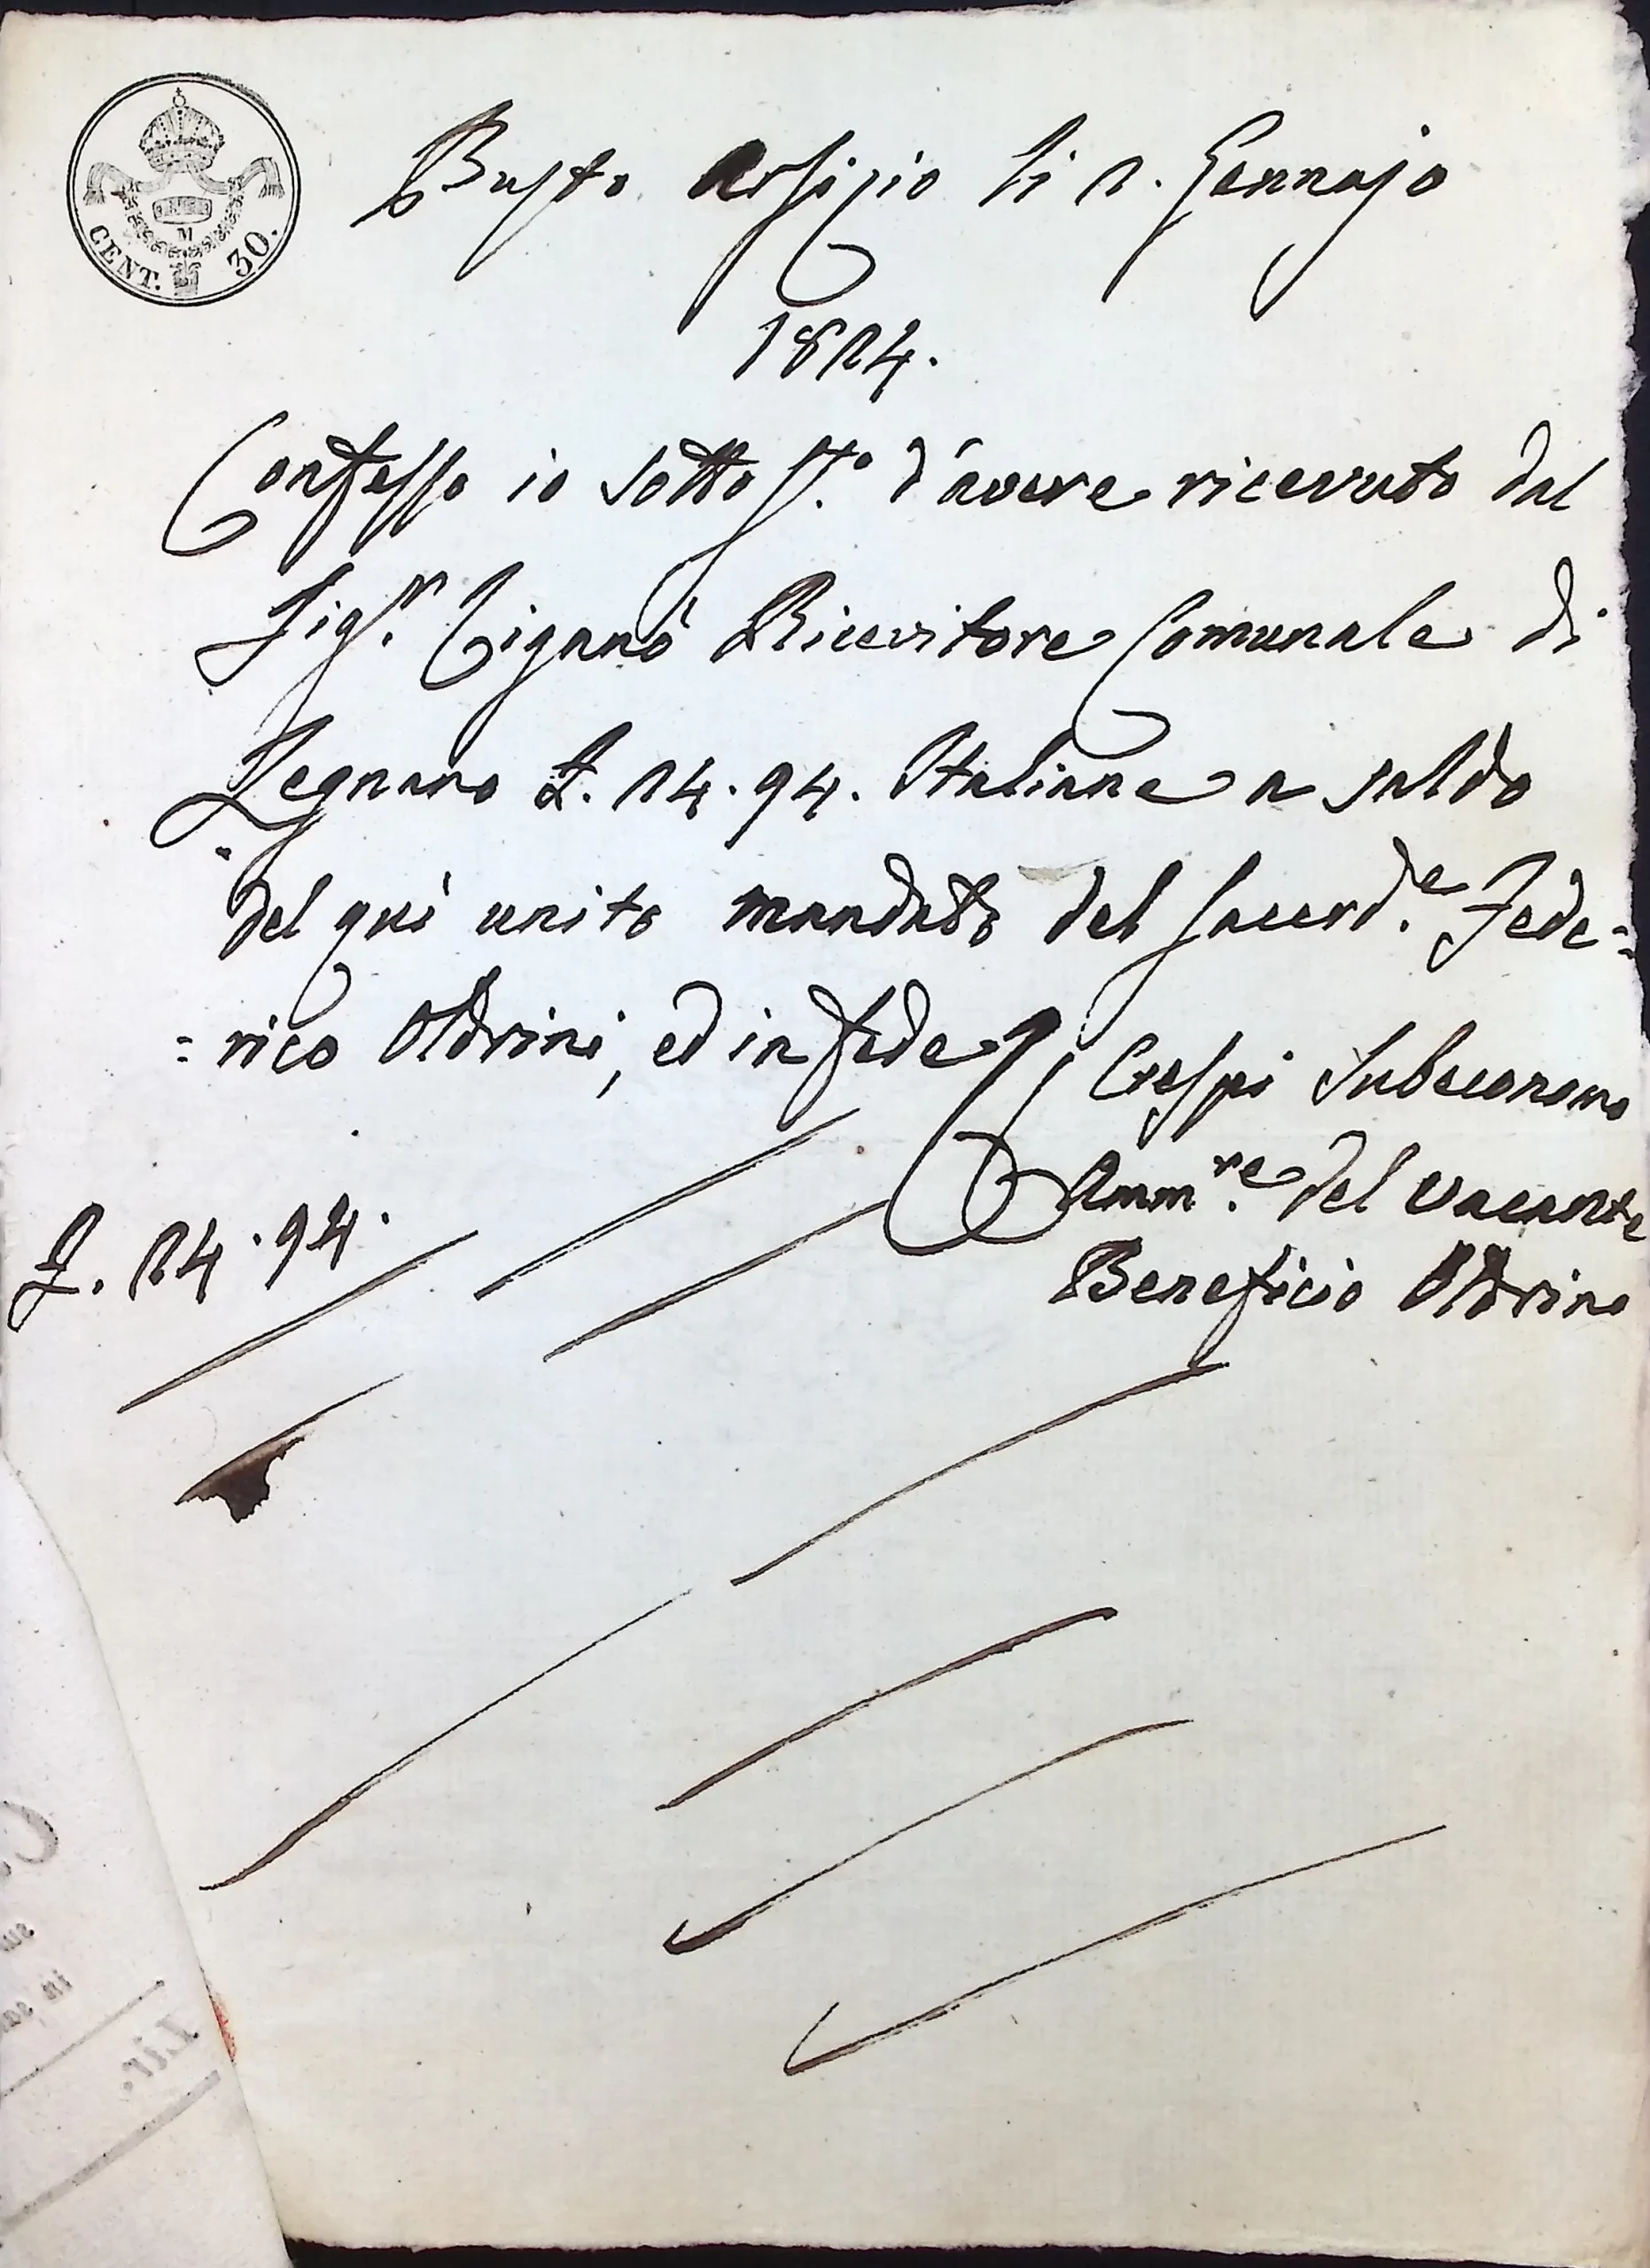 CENT. 30.
M
Busto Arsizio li 2. Gennajo
1824.
Confesso io sottos.to d'avere ricevuto dal
Sig.r Ciganò Ricevitore Comunale di
Legnano L. 24. 94. Italiane a saldo
del quì unito mandato del Sacerd.e Fede=
=rico Oldrini, ed in fede
Crespi Subeconomo
Amm.re del vacante
Beneficio Oldrino
L. 24. 94.
Lir.